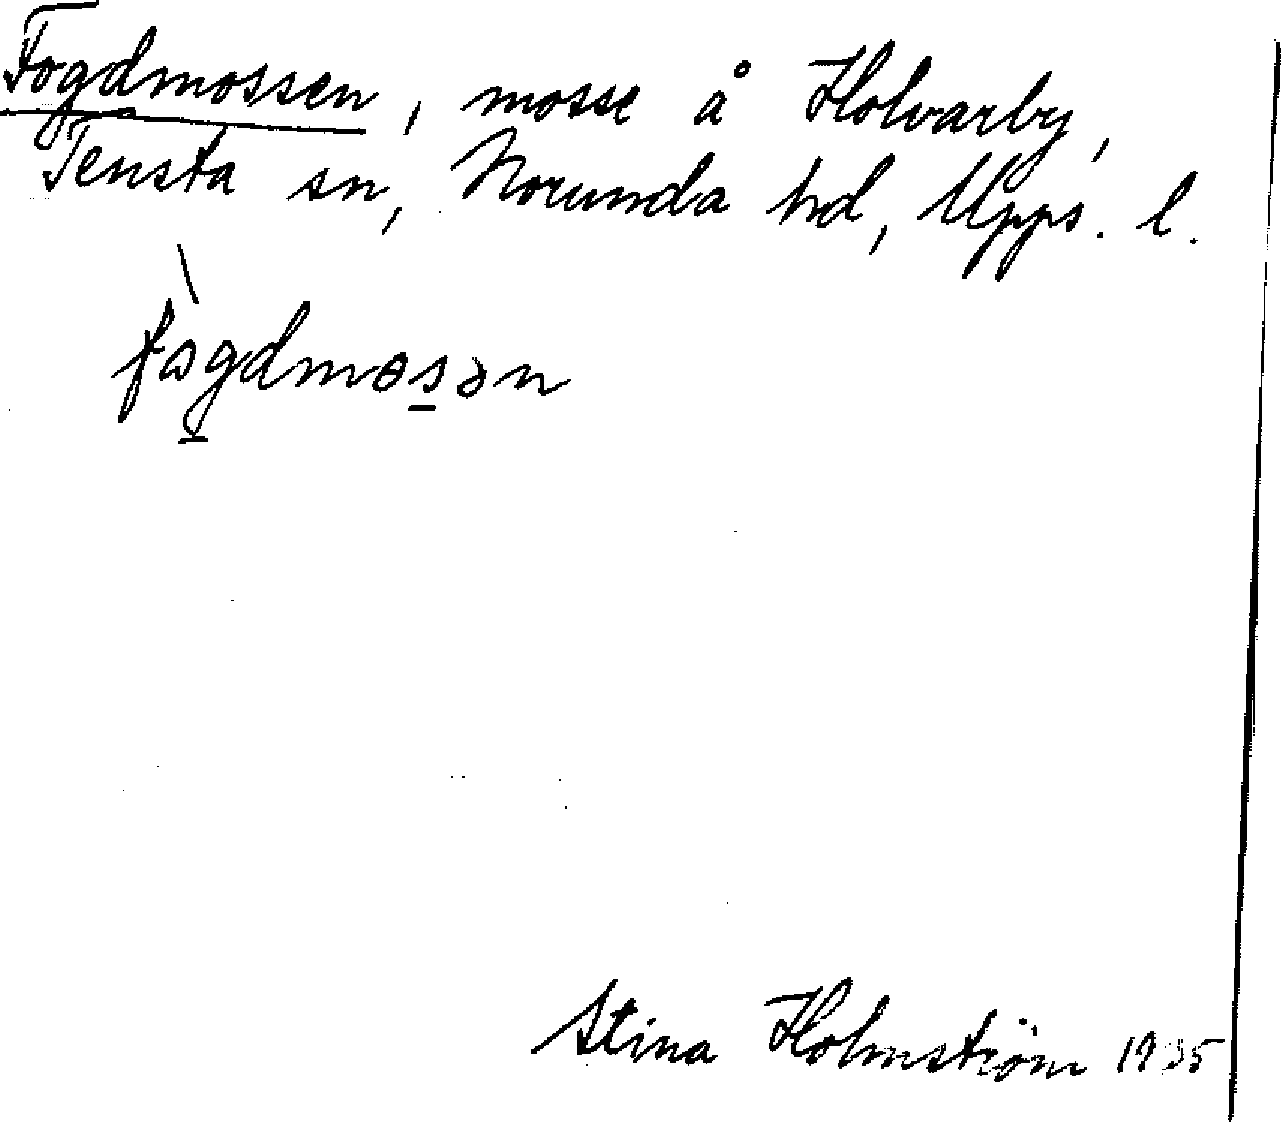 Fogdmossen, mosse å Holvarby,
Tensta sn, Norunda hd, Upps. l.
fàgdmosən
Stina Holmström 1935